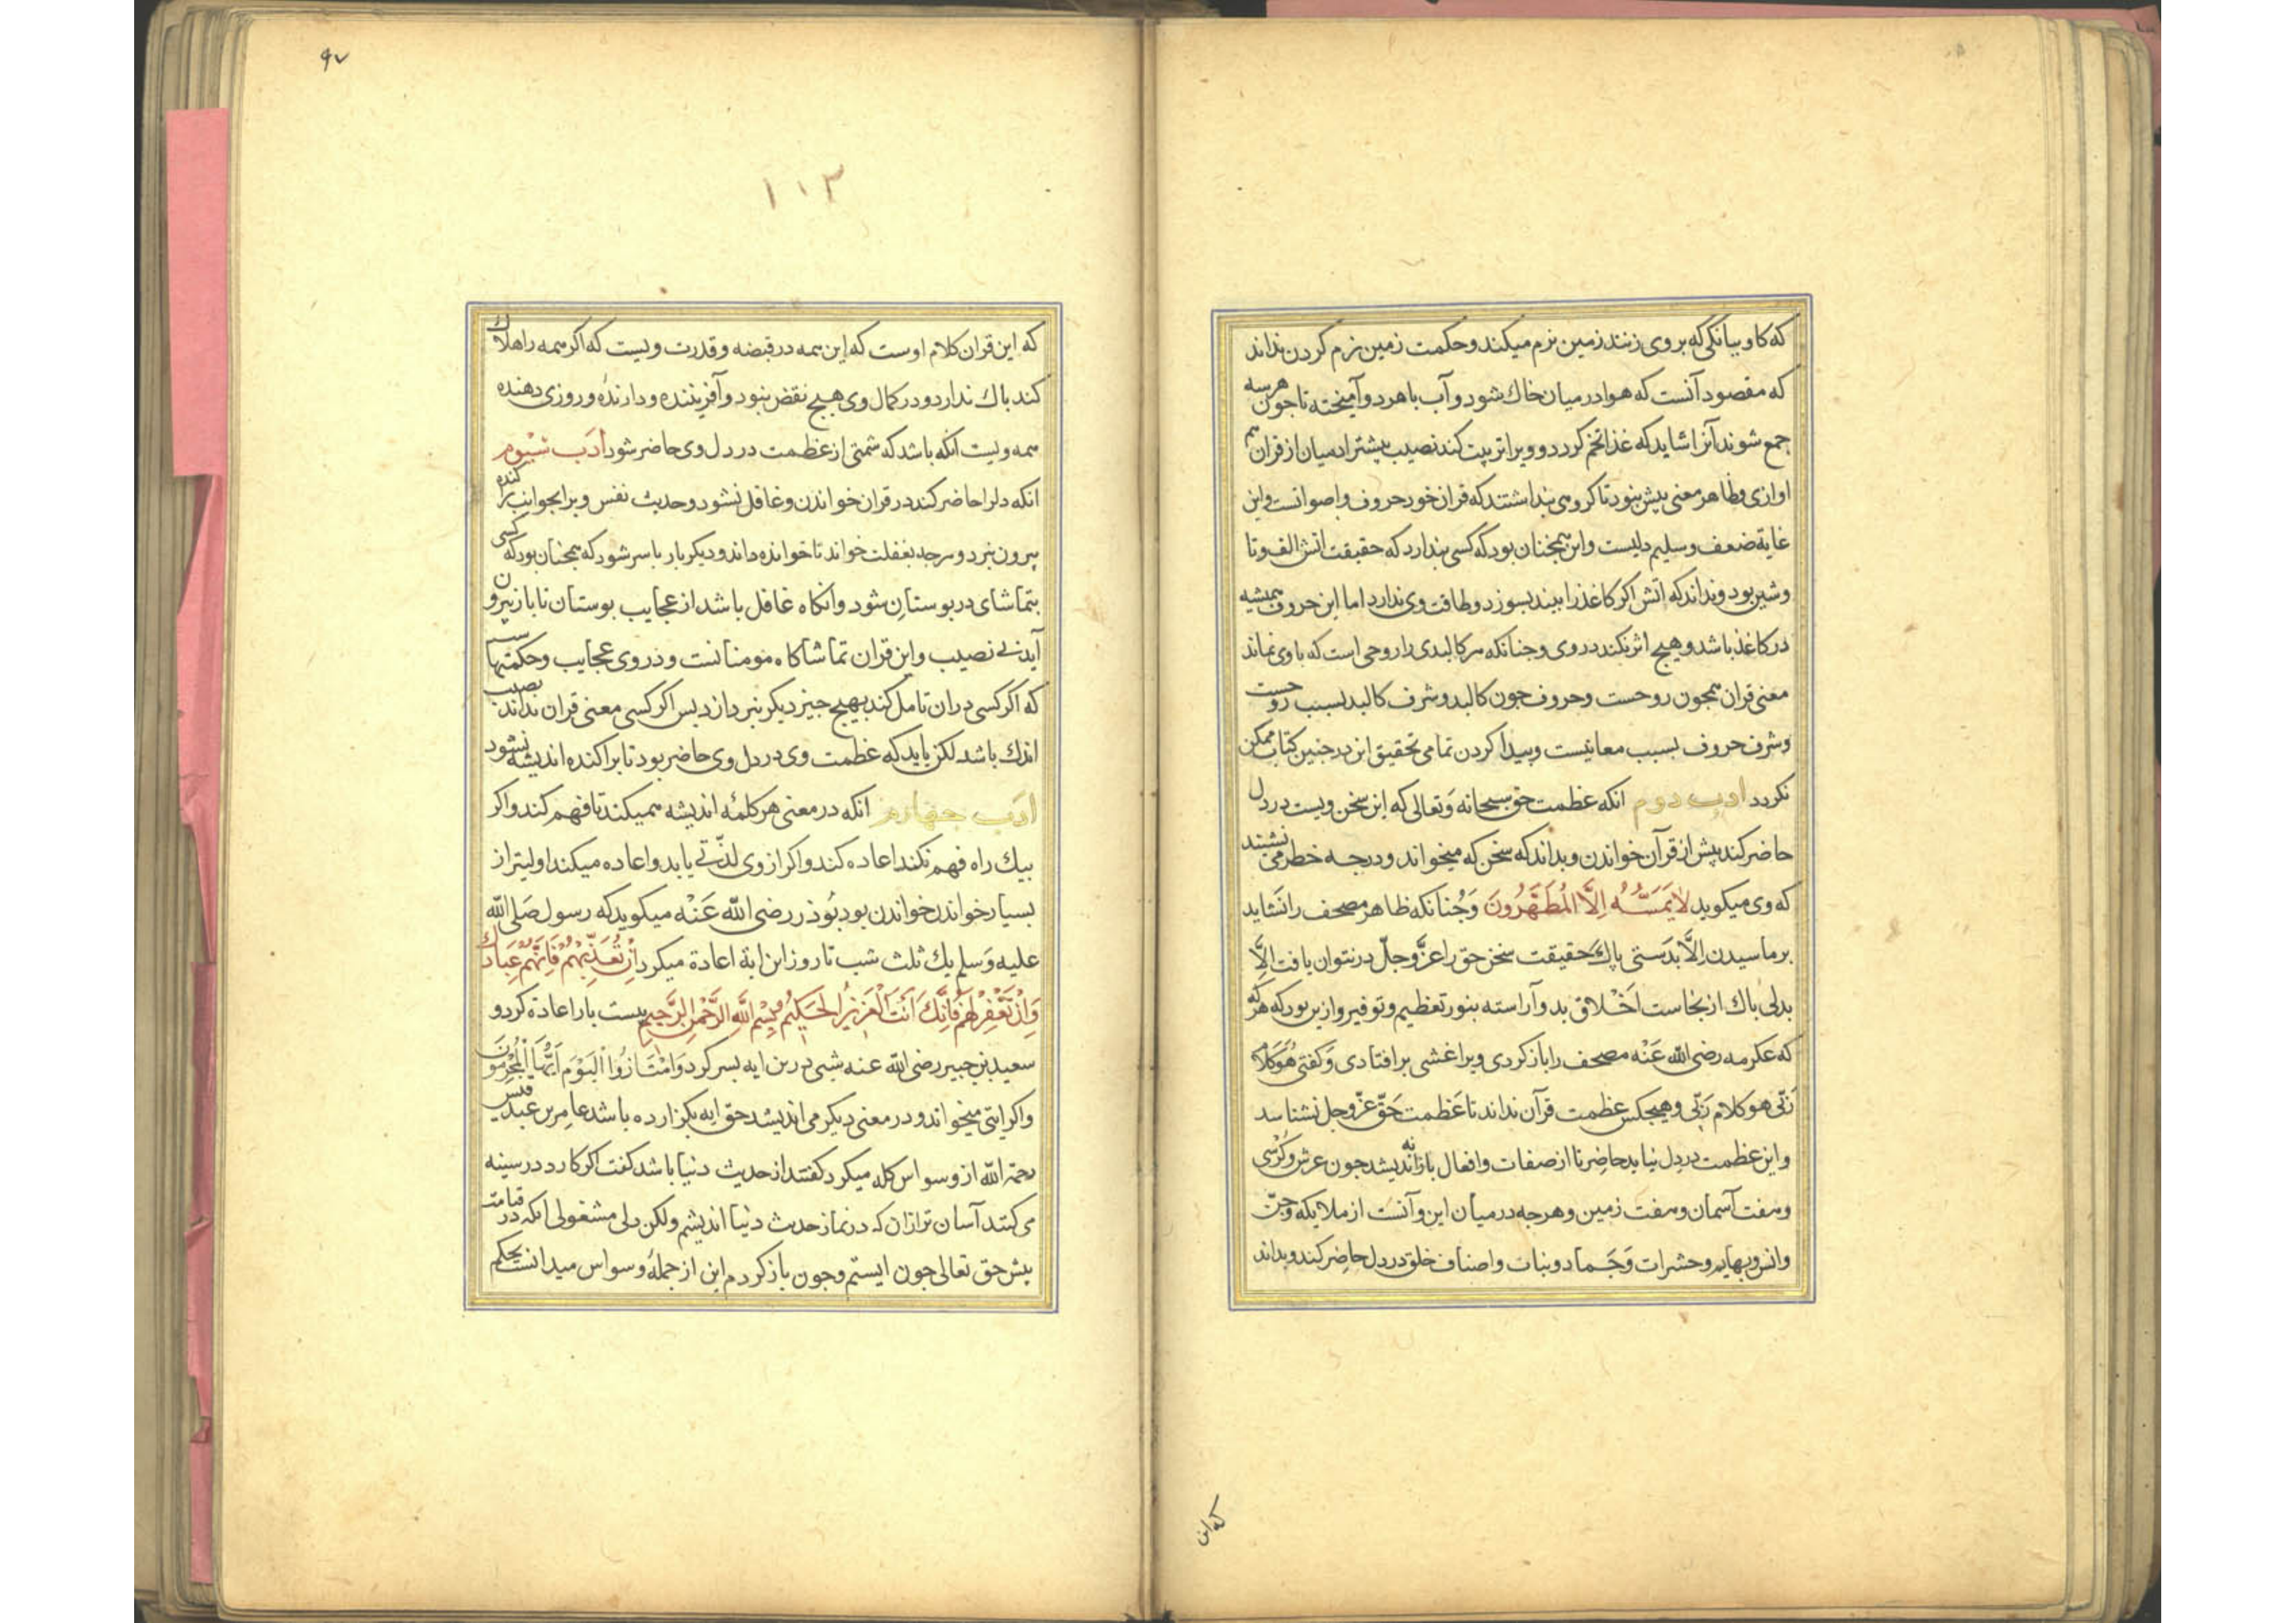 که کاو ببانکی که بر وی زنند زمین نرم میکند و حکمت زمین نرم کردن نداند
که مقصود آنست که هوا در میان خاك شود و آب با هر دو آمیخته تا جون هرسه
جمع شوند آنرا شاید که غذا تخم کردد و ویرا تربیت کند نصیب بیشتر ادمیان از قران هم
اوازی و ظاهر معنی بیش نبود تا کروهی بنداشتند که قران خود حروف و اصواتست و این
غایة ضعف و سلیم دلیست و این همجنان بود که کسی بندارد که حقیقت اتش الف و تا
و شین بود و نداند که اتش اکر کاغذ را بیند بسوزد و طاقت وی ندارد اما این حروف همیشه
در کاغذ باشد و هیچ اثر نکند در وی و جنانکه هر کالبدی را روحی است که با وی نماند
معنی قران همجون روحست و حروف جون کالبد و شرف کالبد بسبب روحست
و شرف حروف بسبب معانیست و بیدا کردن تمامی تحقیق این در جنین کتاب ممکن
نکردد ادب دوم انکه عظمت حق سبحانه وتعالی که این سخن ویست در دل
حاضر کند بیش از قرآن خواندن و بداند که سخن که میخواند و درجه خطر می نشیند
که وی میکوید لا یمسه الا المطهرون و جنانکه ظاهر مصحف را نشاید
برماسیدن الا بدستی باك حقیقت سخن حق را عز وجل در نتوان یافت الا
بدلی باك از نجاست اخلاق بد و آراسته بنور تعظیم و توقیر و ازین بود که هرکه
که عکرمه رضی الله عنه مصحف را باز کردی ویرا غشی بر افتادی و کفتی هو کلام
ربی هو کلام ربی و هیجکس عظمت قرآن نداند تا عظمت حق عز وجل نشناسد
و این عظمت در دل نیاید حاضر تا از صفات و افعال باز نه اندیشد جون عرش و کرسی
و هفت آسمان و هفت زمین و هرجه در میان این و آنست از ملایکه و جن
و انس و بهایم و حشرات و جماد و نبات و اصناف خلق در دل حاضر کند و بداند
که این
۹۷
۱۱۳
که این قران کلام اوست که این همه در قبضه و قدرت ویست که اکر همه را هلاك
کند باك ندارد و در کمال وی هیچ نقض نبود و آفریننده و دارنده و روزی دهنده
همه ویست انکه باشد که شمتی از عظمت در دل وی حاضر شود ادب سیوم
انکه دلرا حاضر کند در قران خواندن و غافل نشود و حدیث نفس ویرا بجوانب براکنده
بیرون نبرد و هرجه بغفلت خواند تا خوانده داند و دیکر بار باسر شود که همجنان بود که کسی
بتماشای در بوستان شود و انکاه غافل باشد از عجایب بوستان تا باز بیرون
آید بی نصیب و این قران تماشاکاه مومنانست و در وی عجایب و حکمتهاست
که اکر کسی در ان تامل کند بهیچ جیز دیکر نبردازد بس اکر کسی معنی قران نداند نصیب
اندك باشد لکن باید که عظمت وی در دل وی حاضر بود تا براکنده اندیشه نشود
ادب جهارم انکه در معنی هر کلمه اندیشه همیکند تا فهم کند و اکر
بیك راه فهم نکند اعاده کند و اکر از وی لذتی یابد و اعاده میکند اولیتر از
بسیار خواندن خواندن بود بوذر رضی الله عنه میکوید که رسول صلی الله
علیه وسلم یك ثلث شب تا روز این ایة اعادة میکرد ان تعذبهم فانهم عبادك
وان تغفر لهم فانك انت العزیز الحکیم و بسم الله الرحمن الرحیم بیست بار اعادة کرد و
سعید بن جبیر رضی الله عنه شبی درین ایه بسر کرد وامتازوا الیوم ایها المجرمون
و اکر ایتی میخواند و در معنی دیکر می اندیشد حق ایه نکزارده باشد عامر بن عبد قیس
رحمه الله از وسواس کله میکرد کفتند از حدیث دنیا باشد کفت اکر کارد در سینه
می کنند آسان تر ازان که در نماز حدیث دنیا اندیشم ولکن دلی مشغولی انکه در قیامت
بیش حق تعالی جون ایستم و جون باز کردم این از جمله وسواس میدانست بحکم